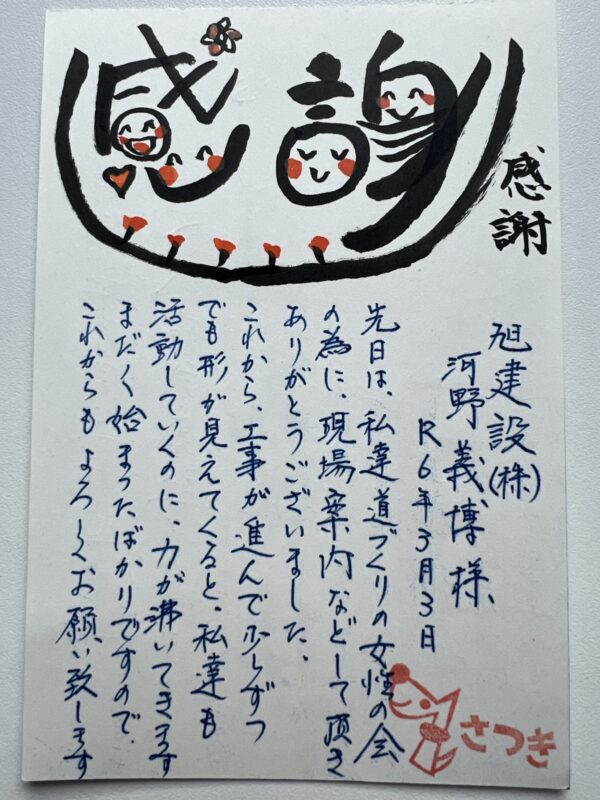 感謝
感謝
旭建設(株)
河野義博様
R6年3月3日
先日は、私達道づくりの女性の会
の為に、現場案内などして頂き
ありがとうございました。
これから、工事が進んで少しずつ
でも形が見えてくると、私達も
活動していくのに、力が沸いてきます
まだ〱始まったばかりですので、
これからもよろしくお願い致します
さつき